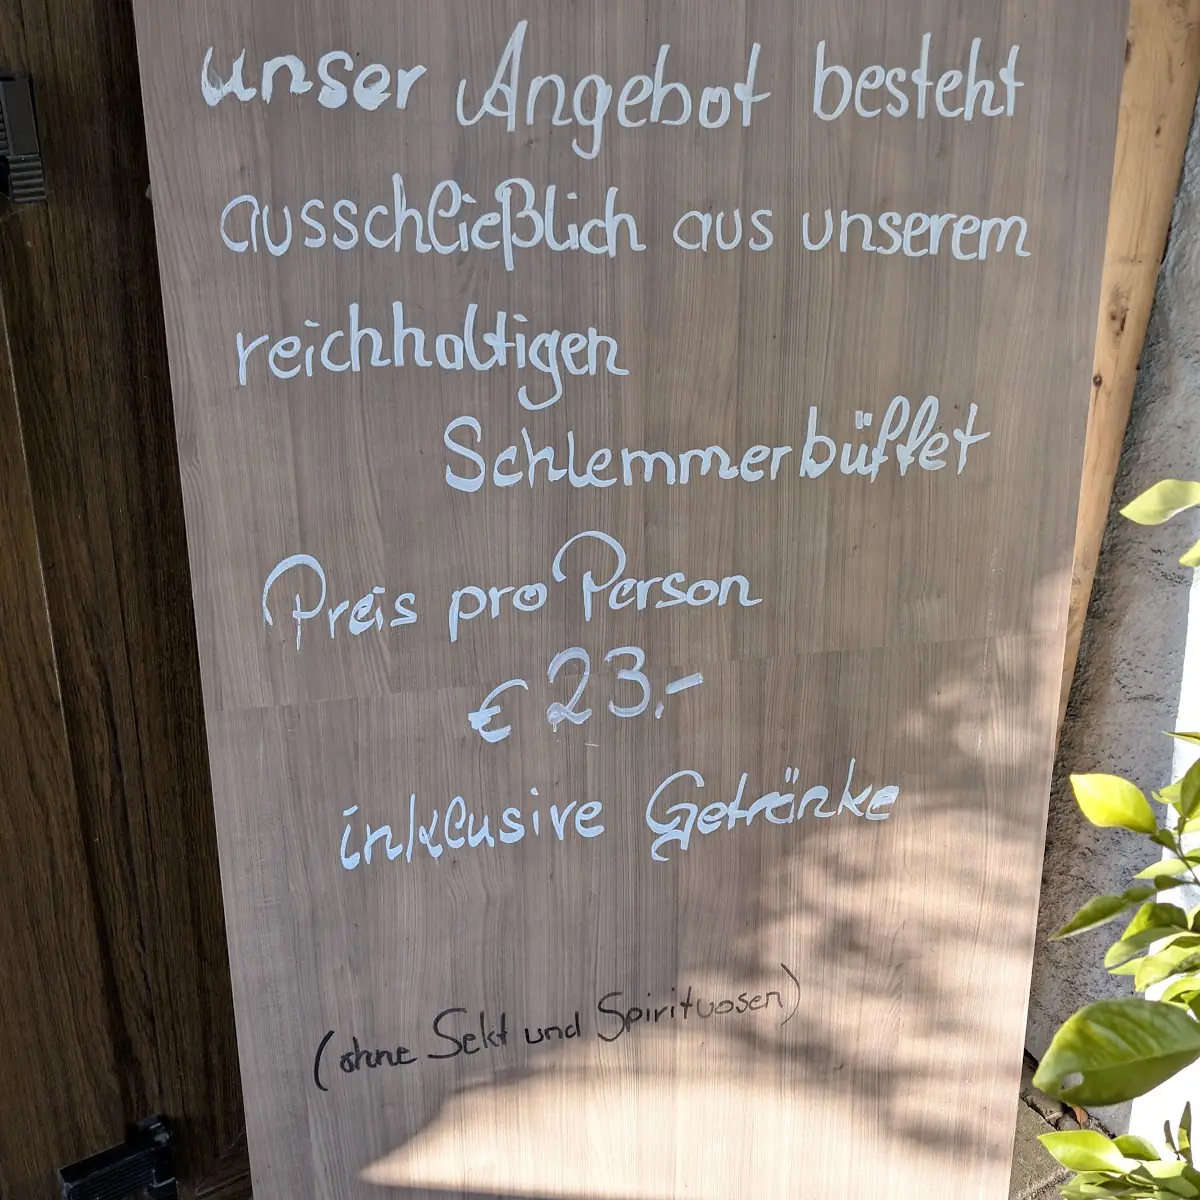 unser Angebot besteht
ausschließlich aus unserem
reichhaltigen
Schlemmerbüffet
Preis pro Person
€ 23,-
inklusive Getränke
(ohne Sekt und Spirituosen)